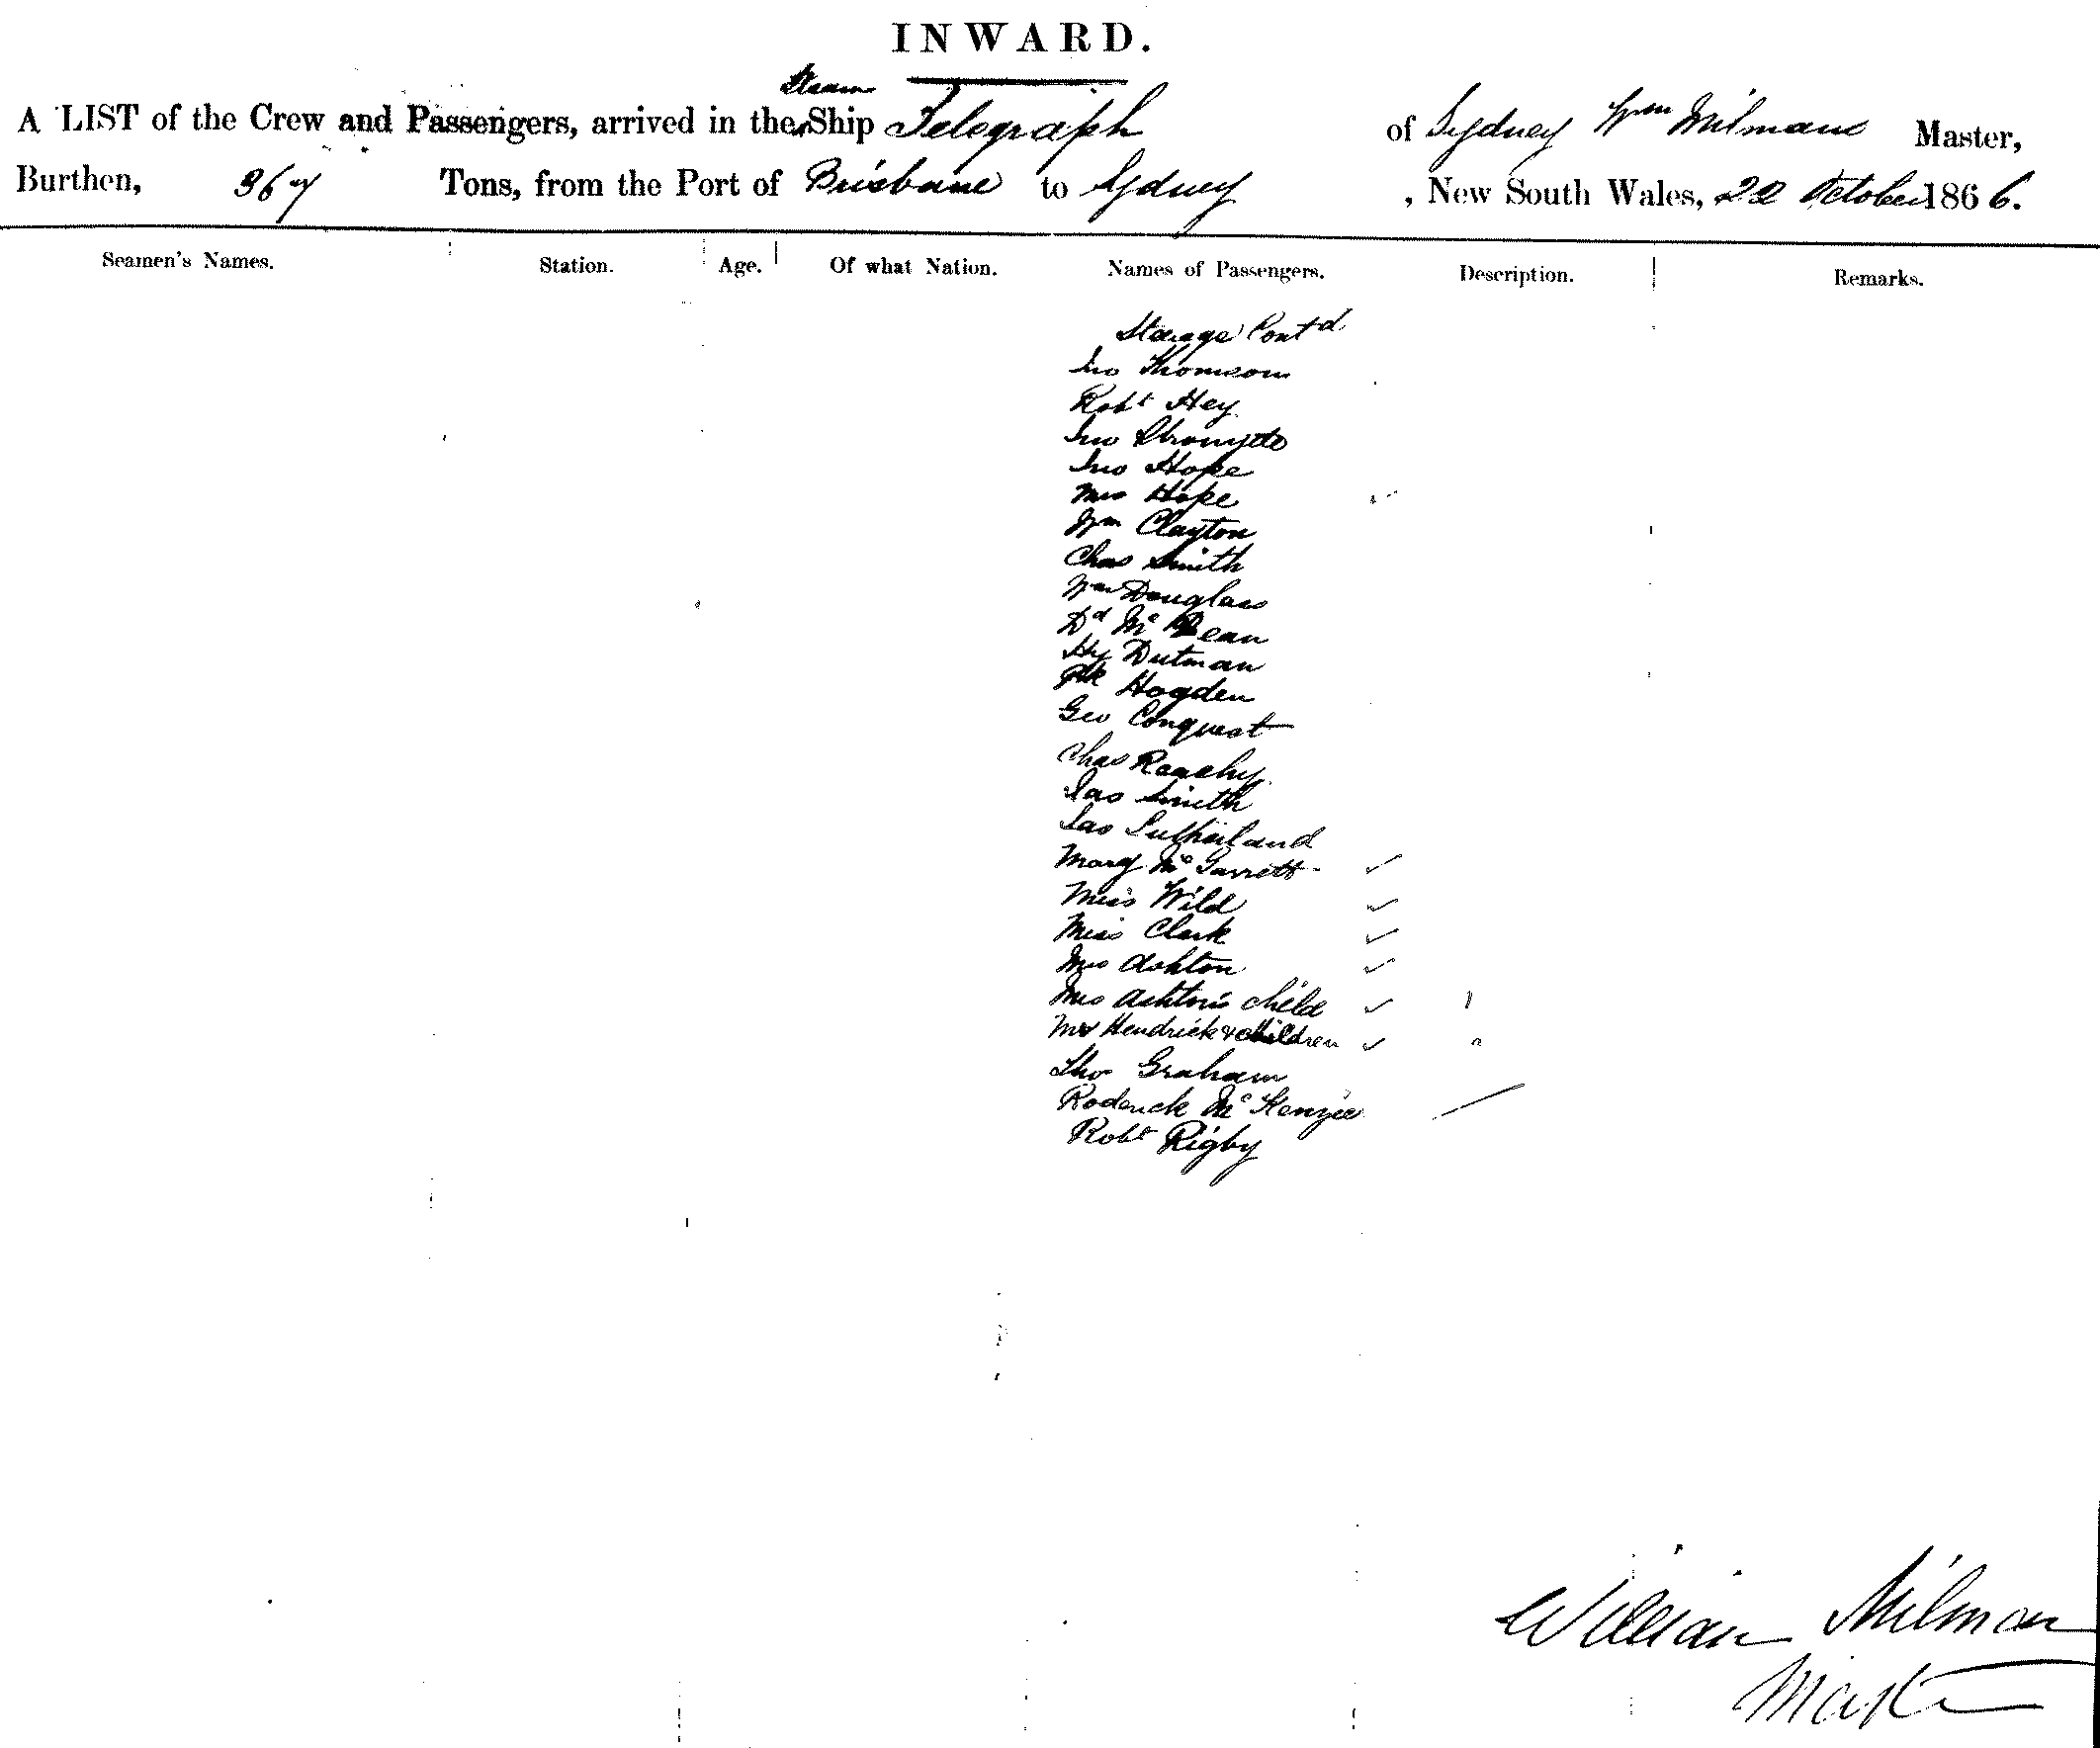 INWARD.
Steam
A LIST of the Crew and Passengers, arrived in the Ship Telegraph of Sydney Wm Milman Master,
Burthen, 367 Tons, from the Port of Brisbane to Sydney , New South Wales, 22 October 1866.
Seamen's Names. Station. Age. Of what Nation. Names of Passengers. Description. Remarks.
Steerage Contd
Jno Thomson
Robt Hey
Jno
Jno Hope
Mrs Hope
Wm Clayton
Chas Smith
Wm Douglass
Dd Mc Bean
Hy Dutman
Hogden
Geo Conquest
Chas
Jas Smith
Jas Sutherland
Mary Mc Garrett
Miss Wild
Miss Clark
Mrs Ashton
Mrs Ashton's child 1
Mrs Hendrick & Children
Tho Graham
Roderick McKenzie
Robt Rigby
William Milman
Master